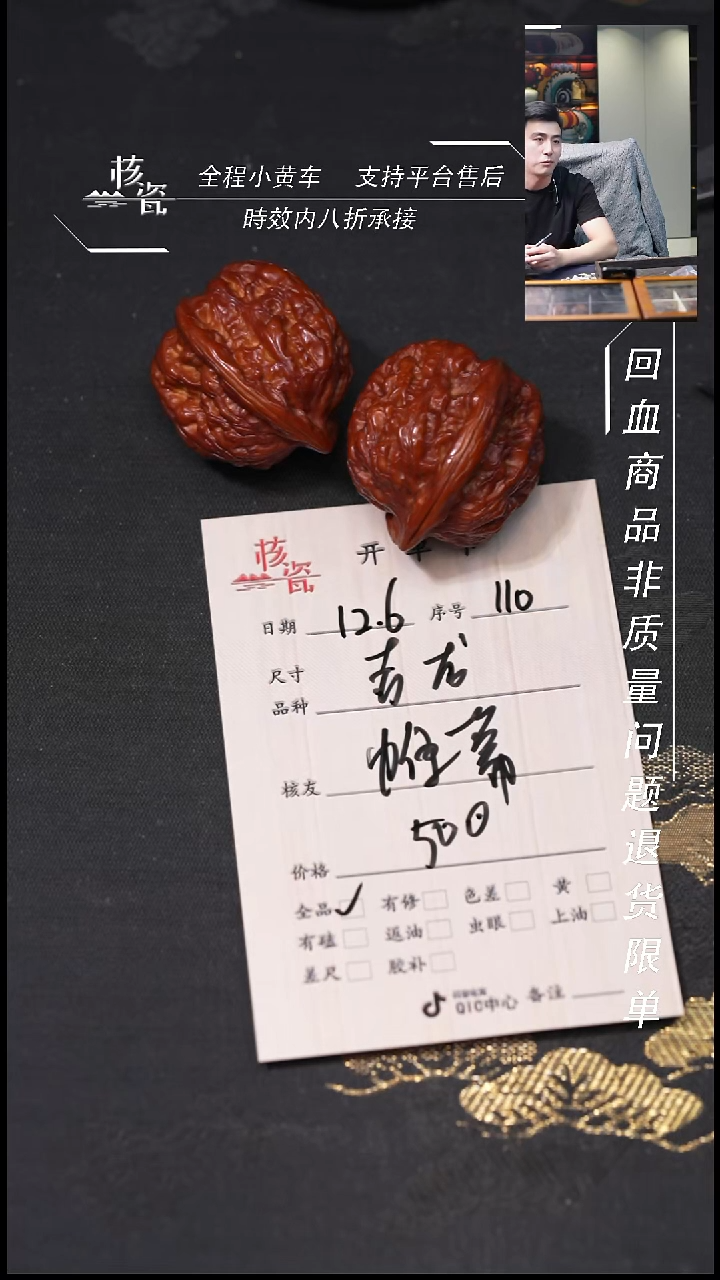 核瓷
全程小黄车 支持平台售后
時效内八折承接
回血商品非质量问题退货限单
核瓷
开
日期 12.6 序号 110
尺寸
品种 青龙
核友
500
价格
全品✓ 有修 色差 黄
有磕 返油 虫眼 上油
差尺 胶补
QIC中心 备注